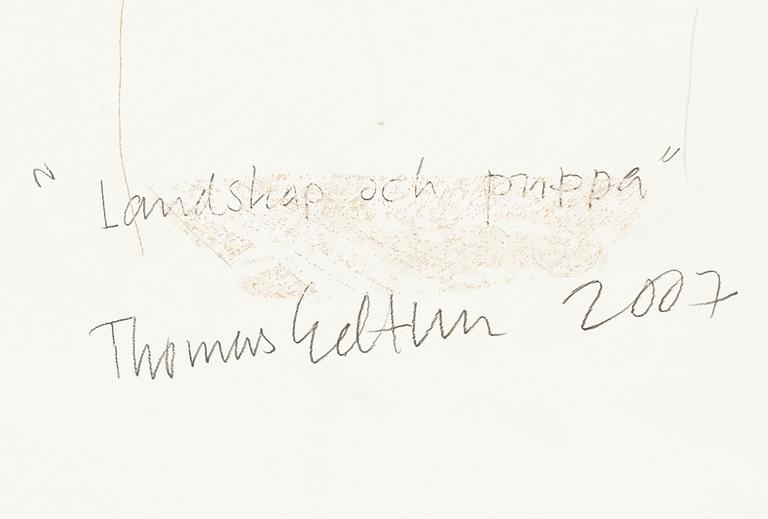 "Landskap och puppa"
Thomas Edetun 2007